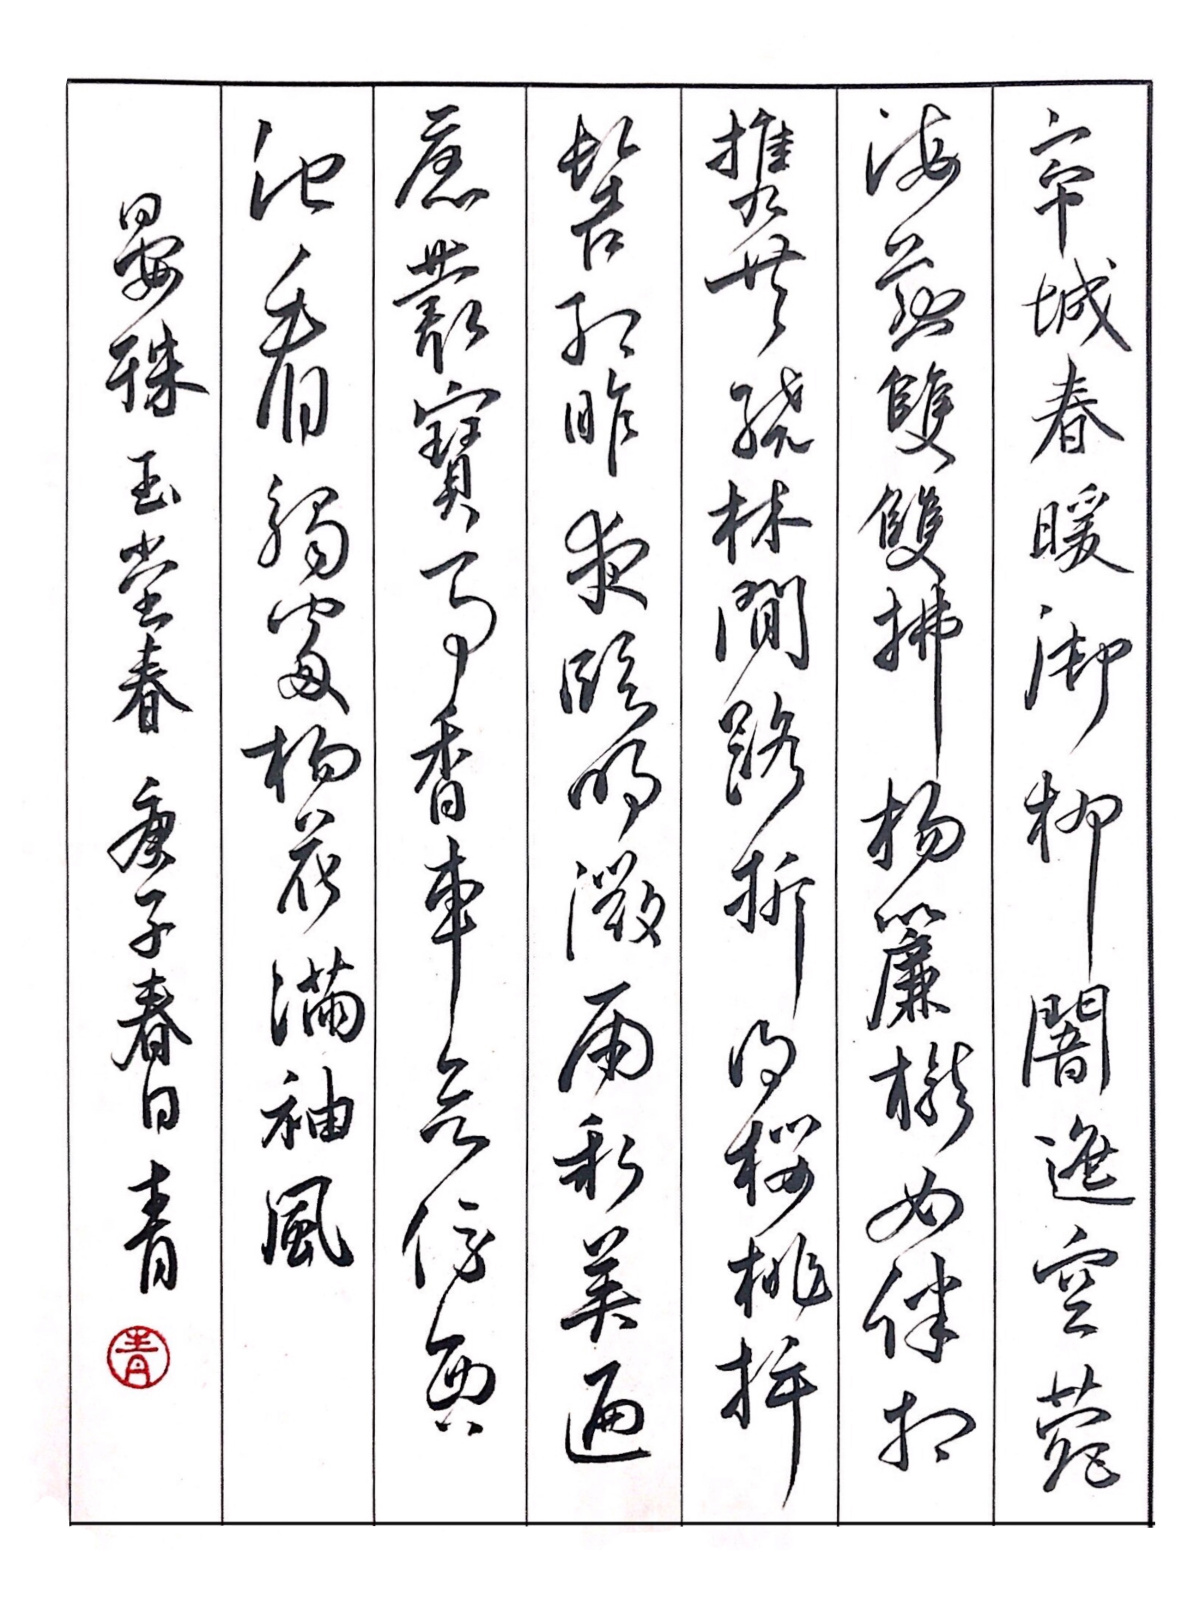 帝城春暖御柳闇遮空苑
海燕雙雙拂揚簾櫳女伴相
攜共繞林間路折得櫻桃插
髻紅昨夜臨明微雨新英遍
舊叢寶馬香車欲傍西
池看觸處楊花滿袖風
晏殊 玉堂春 庚子春日 青
青